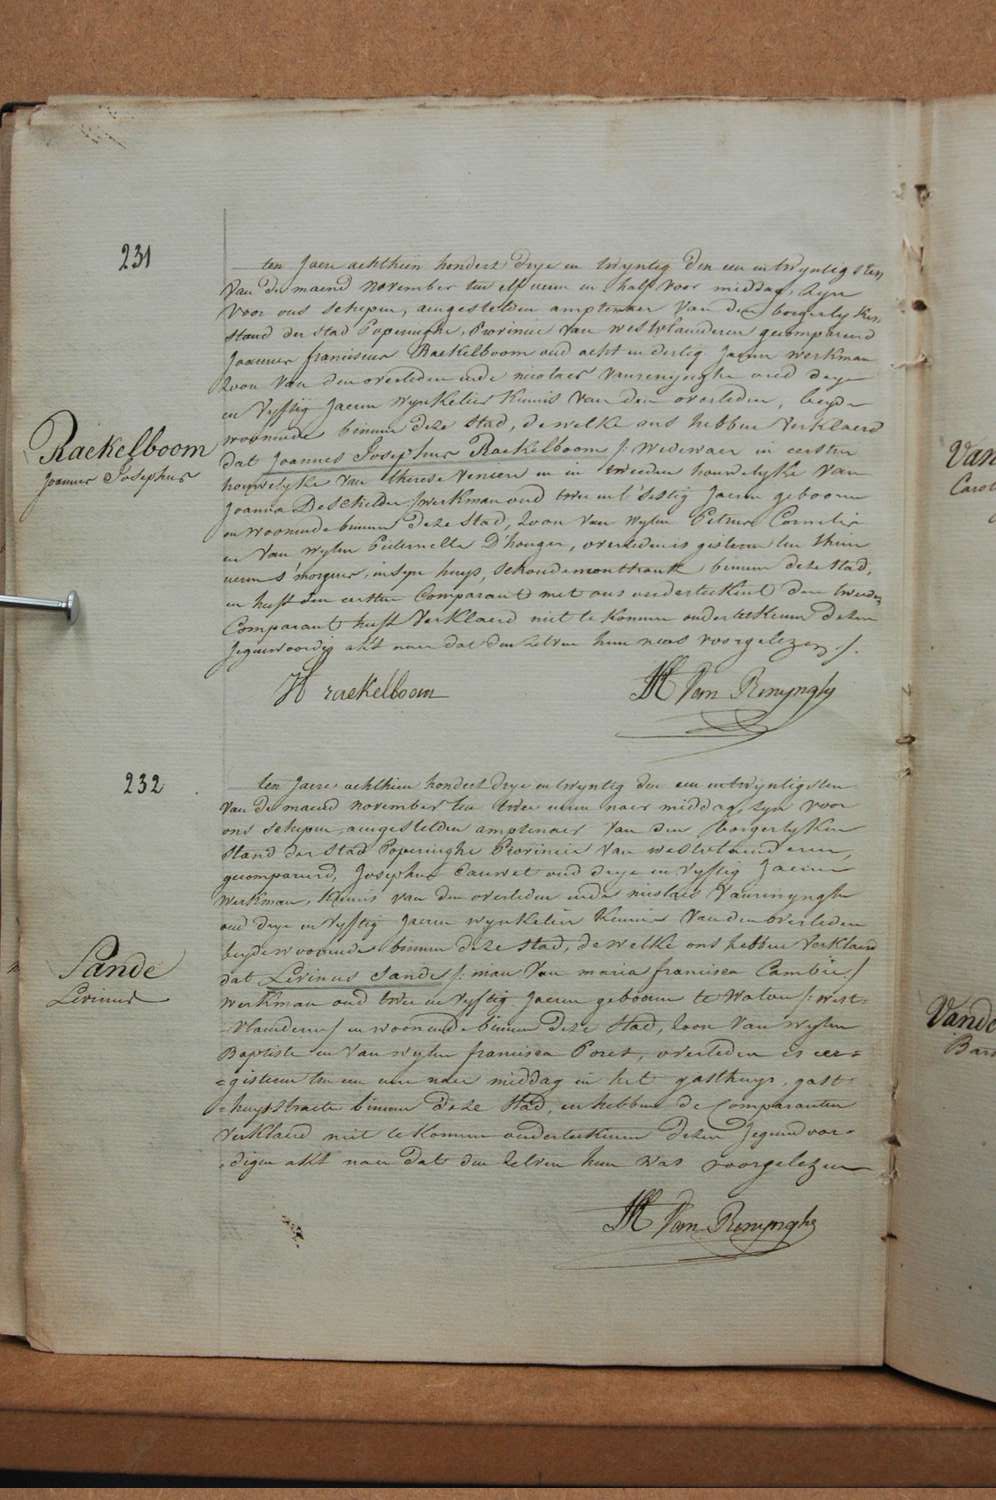 231
ten Jaere achthien hondert drye en twyntig den een en twyntigsten
van de maend november ten elf uren en half voor middag, zyn
voor ons schepen, aengestelden amptenaer van den borgerlyken
stand der stad Poperinghe, Provincie van westvlaenderen gecompareerd
Joannes franciscus Raekelboom oud acht en dertig Jaeren werkman
zoon van den overleden ende nicolaes vanrenynghe oud drye
en vyftig Jaeren wynkelier kennis van den overleden, beyde
woonende binnen deze stad, dewelke ons hebben verklaerd
Raekelboom
Joannes Josephus
dat Joannes Josephus Raekelboom /: wedewaer in eersten
houwelyke van therese in tweeden houwelyke van
Joanna Deschilder :/ werkman oud twee en t'sestig Jaeren geboren
en woonende binnen deze stad, zoon van wylen Petrus Cornelis
en van wylen Peternella D'honger, overleden is gisteren ten
uren s'morgens, in syn huys, binnen deze stad,
en heeft den eersten Comparant met ons onderteekent den tweeden
Comparant heeft verklaerd niet te konnen onderteekenen dezen
Jegenwoordig akt naer dat den zelven hun was voorgelezen /.
raekelboom
Van Renynghe
232
ten Jaere achthien hondert drye en twyntig den een en twyntigsten
van de maend november ten twee uren naer middag, zyn voor
ons schepen, aengestelden amptenaer van den borgerlyken
stand der stad Poperinghe Provincie van westvlaenderen,
gecompareerd, Josephus Cauwet oud drye en vyftig Jaeren
werkman, kennis van den overleden ende nicolaes vanrenynghe
oud drye en vyftig Jaeren wynkelier kennis van den overleden
beyde woonende binnen deze stad, dewelke ons hebben verklaerd
Sande
Livinus
dat Livinus Sande /: man van maria francisca Cambie :/
werkman oud twee en vyftig Jaeren geboren te Watou /: west-
-vlaenderen :/ en woonende binnen deze stad, zoon van wylen
Baptiste en van wylen francisca Poret, overleden is eer-
=gisteren ten een ure naer middag in het gasthuys, gast-
-huysstraete binnen deze stad, en hebben de Comparanten
verklaerd niet te konnen onderteekenen dezen Jegenwoor-
-digen akt naer dat den zelven hun was voorgelezen
Van Renynghe
Van
Carol
Vande
Bar